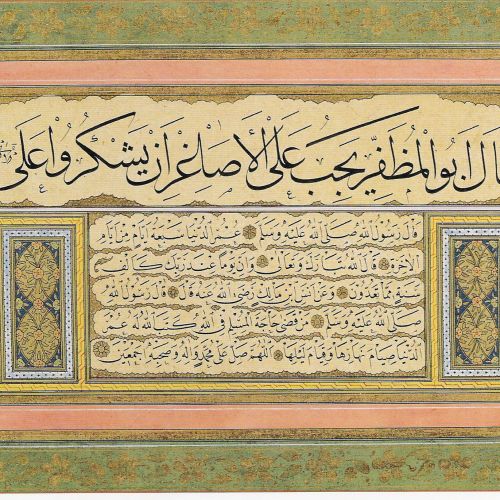 قال ابو المظفر يجب على الاصاغر ان يشكروا على
قال رسول الله صلى الله عليه وسلم عمر الدنيا سبعة ايام من ايام
الآخرة قال الله تبارك وتعالى وان يوما عند ربك كالف
سنة مما تعدون وعن انس بن مالك رضى الله عنه قال قال رسول الله
صلى الله عليه وسلم من قضى حاجة المسلم فى الله كتب الله له عمر
الدنيا صيام نهارها وقيام ليلها اللهم صل على محمد واله وصحبه اجمعين